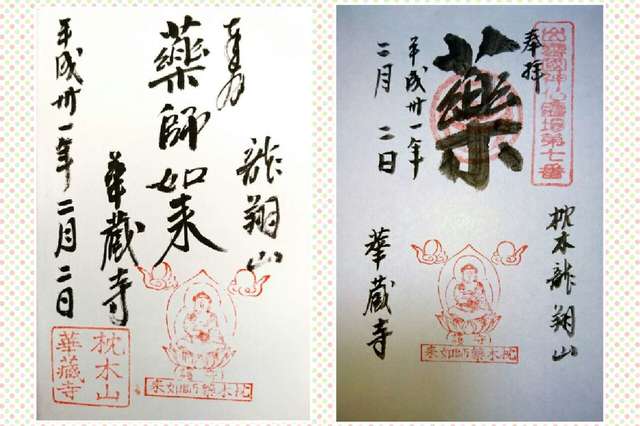 奉拝
龍翔山
藥師如来
華蔵寺
平成卅一年二月二日
枕木藥師如来
枕木山
華蔵寺
出雲國神仏霊場第七番
奉拝
枕木龍翔山
藥
平成卅一年
二月二日
華蔵寺
枕木藥師如来